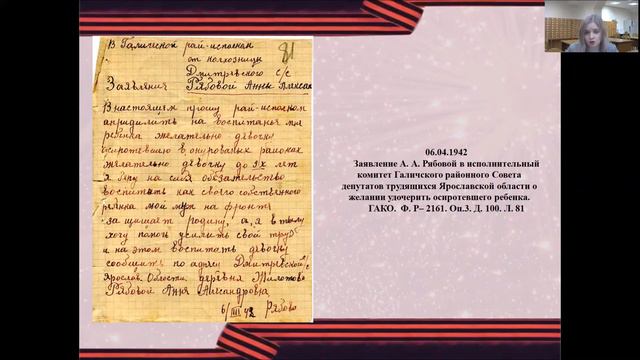 В Галичской рай-исполком
81
от колхозницы
Дмитревского с/с
Заявления Рябовой Анны Алексан
В настоящем прошу рай-исполком
на воспитанья мне
ребенка желательно девочку
осиротевшую в окупированых районах
желательно девочку до 3х лет
я беру на себя обязательство
воспитать как своего собственного
ребенка мой муж на фронте
защищает родину, а я в тылу
хочу помочь усилить свой труд
и на этом воспитать девочку
сообщить по адресу Дмитревской с/с
Яросла. Области деревня
Рябовой Анна Александровна
6/III 42 Рябова
06.04.1942
Заявление А. А. Рябовой в исполнительный
комитет Галичского районного Совета
депутатов трудящихся Ярославской области о
желании удочерить осиротевшего ребенка.
ГАКО. Ф. Р– 2161. Оп.3. Д. 100. Л. 81